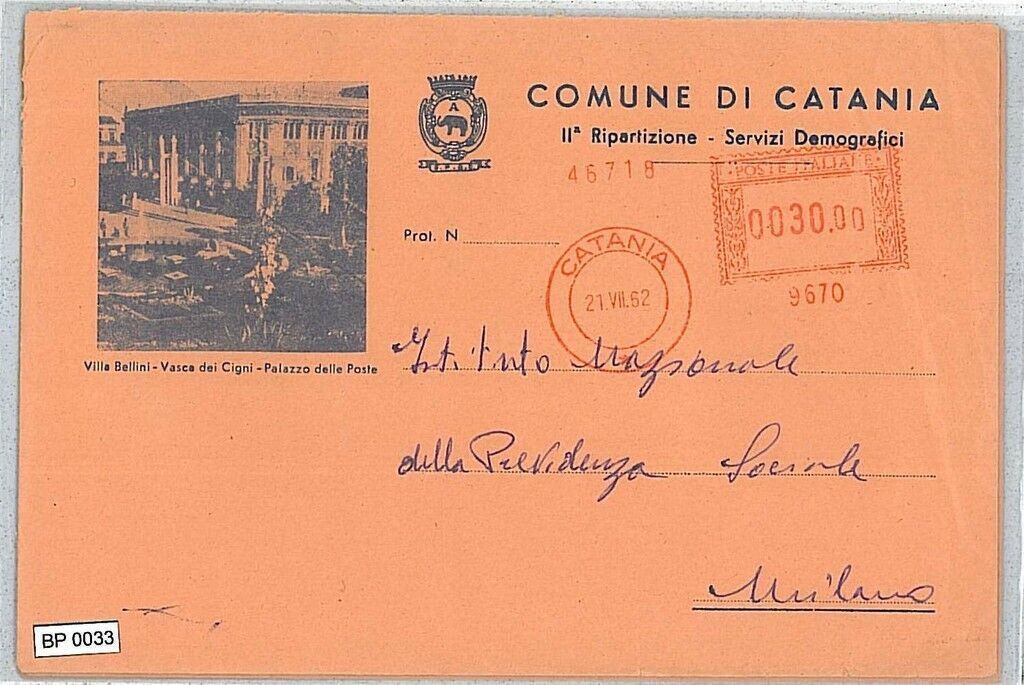 COMUNE DI CATANIA
IIª Ripartizione - Servizi Demografici
A
46718
POSTE ITALIANE
0030.00
9670
Prot. N
CATANIA
21.VII.62
Villa Bellini - Vasca dei Cigni - Palazzo delle Poste
Istituto Nazionale
della Previdenza Sociale
Milano
BP 0033